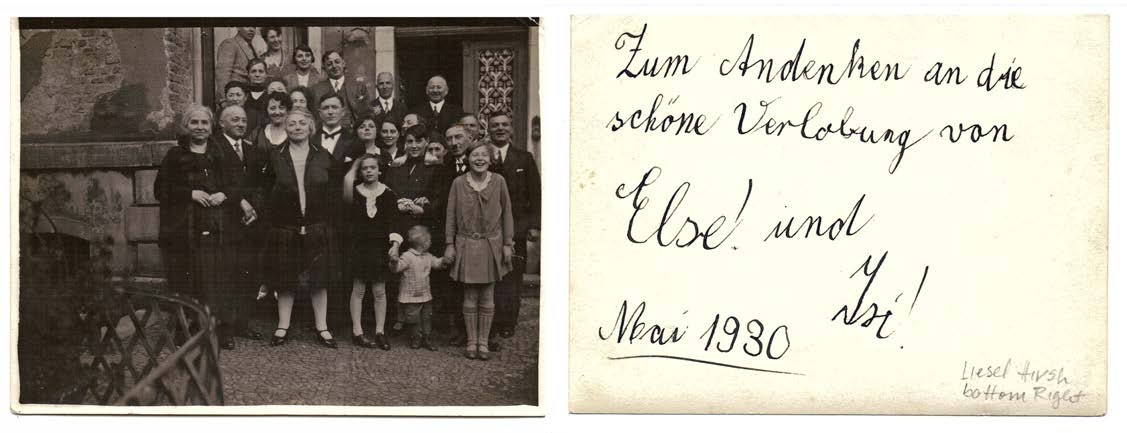 Zum Andenken an die
schöne Verlobung von
Else! und
Isi!
Mai 1930
Liesel Hirsh
bottom Right